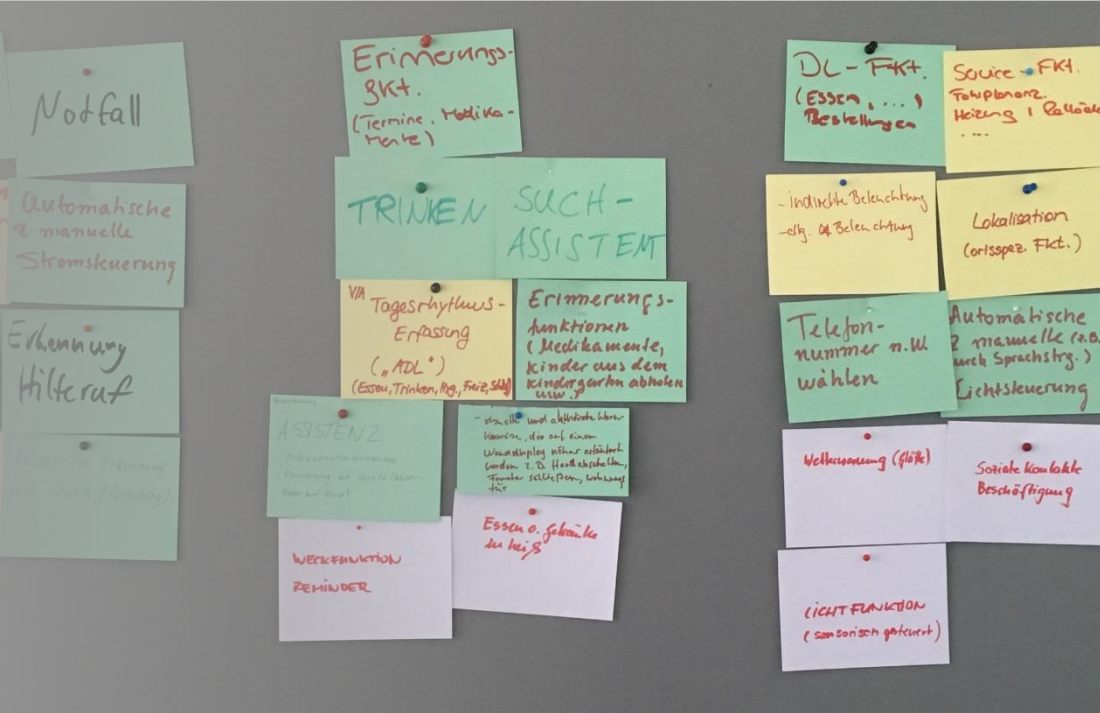 Notfall
Automatische
& manuelle
Stromsteuerung
Erkennung
Hilferuf
Erinnerungs-
fkt.
(Termine, Medika-
mente)
TRINKEN
SUCH-
ASSISTENT
V/A
Tagesrhythmus-
Erfassung
("ADL")
(Essen, Trinken, Hyg., Freiz., Schlaf)
Erinnerungs-
funktionen
(Medikamente,
Kinder aus dem
Kindergarten abholen
usw.)
ASSISTENZ
- visuelle und akustische Warn-
hinweise, die auf einem
Wanddisplay näher erläutert
werden z.B. Herd abschalten,
Fenster schließen, Wohnungs
tür
WECKFUNKTION
REMINDER
Essen o. Getränke
zu heiß
DL - Fkt.
(Essen, ...)
Bestellungen
Service - FKT.
Heizung,
....
- indirekte Beleuchtung
Beleuchtung
Lokalisation
(ortsspez. Fkt.)
Telefon-
nummer n.W.
wählen
Automatische
& manuelle (z.B.
durch Sprachstrg.)
Lichtsteuerung
Wetterwarnung (Glätte)
Soziale Kontakte
Beschäftigung
LICHTFUNKTION
(sensorisch gesteuert)